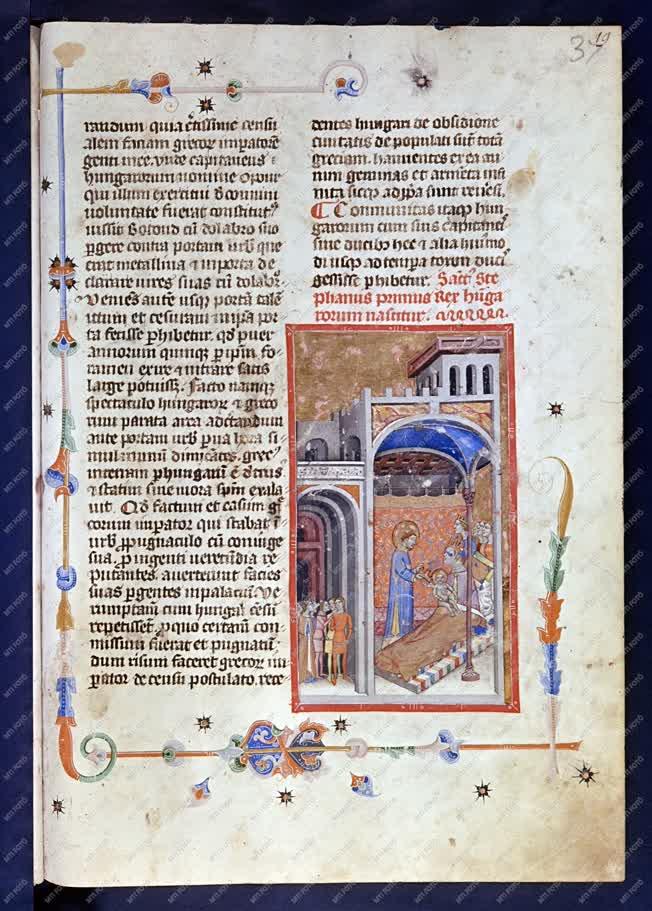 37
19
randum quia citissime censu
alem faciam grecorum imperatorem
genti mee. vnde capitaneus
hungarorum nomine Opour
qui illum exercitum de communi
voluntate fuerat constitutus
iussit Botond cum dolabro suo
pergere contra portam urbis que
erat metallina et in porta de
clarare vires suas cum dolabro.
Veniens autem usque portam talem
ictum et cesuram in ipsa por
ta fecisse perhibetur. quod puer
annorum quinque per ipsum fo-
ramen exire et intrare satis
large potuisset. Facto namque
spectaculo hungarorum et greco
rum parata area ad
ante portam urbis per una hora si
mul greci
interiam per hungarum est
et statim sine mora spiritum exala
vit. Quod factum et casum gre
corum imperator qui stabat in
urbis propugnaculo cum coniuge
sua pro ingenti verecundia re
putantes. averterunt facies
suas pergentes in palacium. Ve
rumptamen cum hungari censum
repetissent pro quo certamen com-
missum fuerat et pugnatum
dum risum faceret grecorum im
perator de censu postulato. rece
dentes hungari de obsidione
civitatis depopulati sunt totam
greciam. haurientes ex ea au
rum gemmas et armenta infi
nita sicque ad propria sunt reversi.
Communitas itaque hun
garorum cum suis capitaneis
sine ducibus hec et alia huiusmo
di usque ad tempora toxun ducis
gessisse perhibetur. Sanctus Ste
phanus primus Rex hunga
rorum nascitur.
MTI FOTÓ